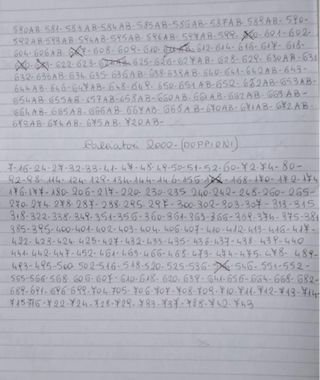 580AB-581-583AB-584AB-585AB-586AB-587AB-589AB-590-
592AB-593AB-594AB-595AB-596AB-597AB-599- 601-602
604-606AB- 608-609-610- 612-614-616-617-618-
622-623- 625-626-627AB-628-629-630AB-631
632-633AB-634-635-636AB-638-639AB-640-641-642AB-643-
644AB-646-647AB-648-649-650-651AB-652-682AB-653AB-
654AB-655AB-657AB-658AB-660AB-661AB-662AB-663AB-
664AB-665AB-666AB-667AB-668AB-670AB-671AB-672AB-
673AB-674AB-675AB-720AB-
Calciatori 2002-(DOPPIONI)
7-16-24-27-32-33-41-47-48-49-50-51-52-60-72-74-80-
114-124-129-134-144-146-156- 168-170-172-174
176-177-180-206-217-220-230-235-240-242-248-260-265-
270-274-278-287-288-295-297-300-302-303-307-313-315
318-322-338-349-351-356-360-361-363-366-369-374-375-381
385-395-400-401-402-403-404-406-407-410-412-413-416-417-
422-423-424-425-427-432-433-435-436-437-438-439-440
441-442-447-452-461-463-466-468-473-474-475-478-489-
493-495-500-502-516-518-520-525-536- 546-551-552-
555-566-568-606-607-610-618-620-639-641-656-664-668-682-
689-691-696-699-704-705-706-707-708-709-710-711-712-713-714-
715-716-722-724-728-729-733-737-738-742-743